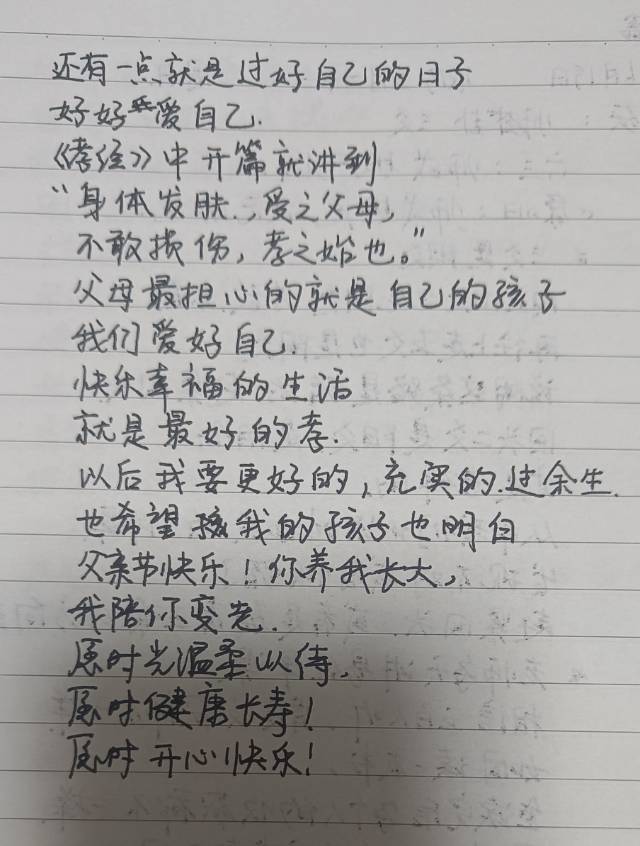 还有一点就是过好自己的日子
好好爱自己.
《孝经》中开篇就讲到
“身体发肤.,受之父母,
不敢损伤,孝之始也。”
父母最担心的就是自己的孩子
我们爱好自己.
快乐幸福的生活
就是最好的孝.
以后我要更好的,充实的.过余生.
也希望我的孩子也明白
父亲节快乐!你养我长大,
我陪你变老.
愿时光温柔以待.
愿时健康长寿!
愿时开心快乐!